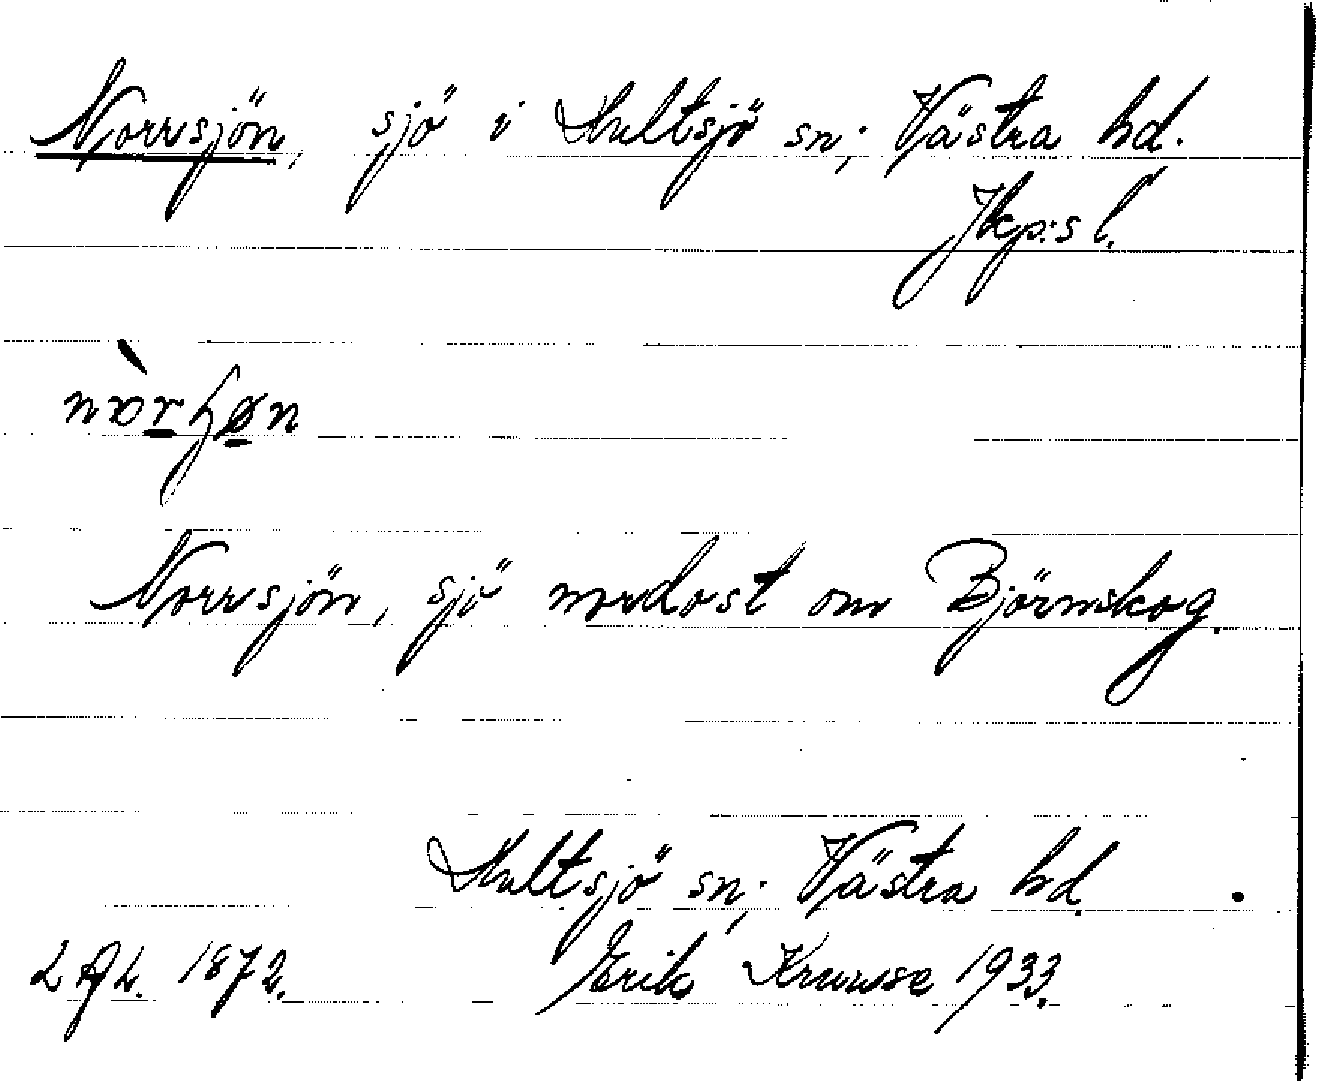 Norrsjön, sjö i Hultsjö sn; Västra hd.
Jkp:s l.
Norrsjön, sjö nordost om Björnskog.
Hultsjö sn; Västra hd.
1872. Erik Kruuse 1933.